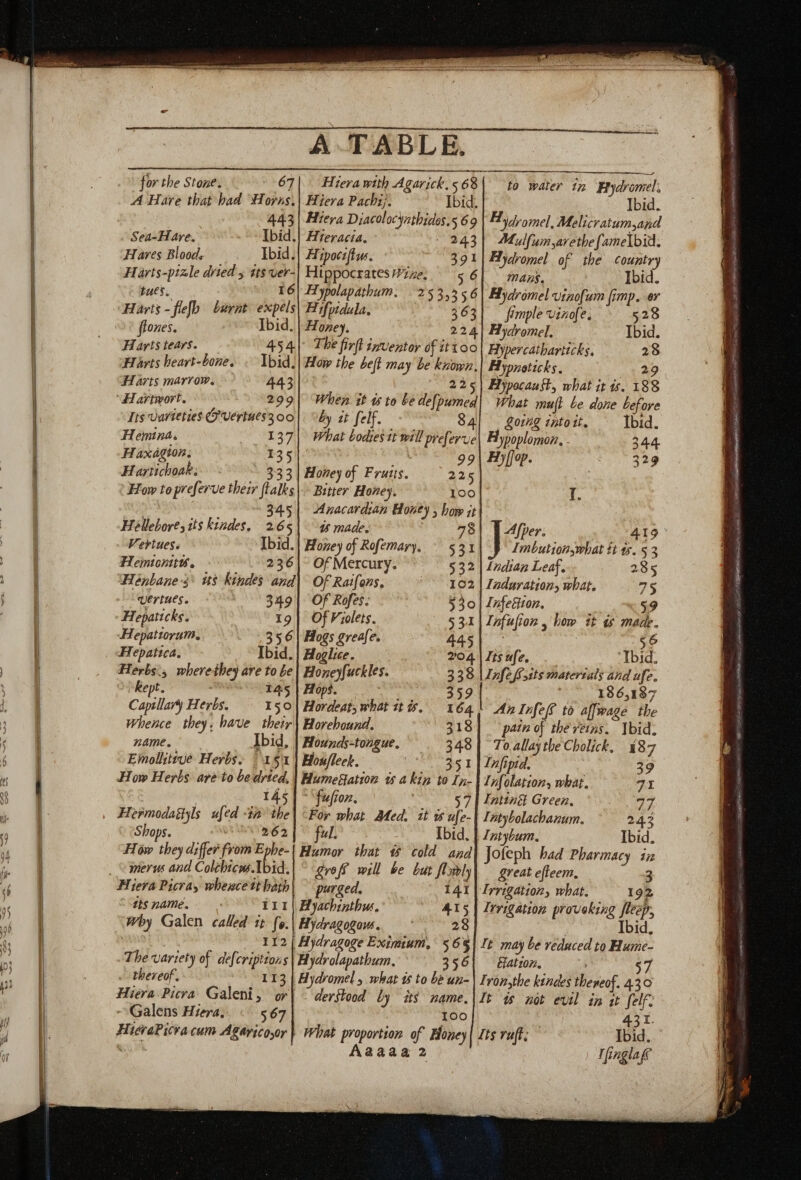 A TABLE.
for the Stone. 67
A Hare that had Horns.
443
Sea-Hare. Ibid.
Hares Blood. Ibid.
Harts-pizle dried, its ver-
tues. 16
Harts-flesh burnt expels
stones. Ibid.
Harts tears. 454
Harts heart-bone. Ibid.
Harts marrow. 443
Hartwort. 299
Its varieties & vertues 300
Hemina. 137
Haxagion. 135
Hartichoak. 333
How to preserve their stalks
345
Hellebore, its kindes. 265
Vertues. Ibid.
Hemionitis. 236
Henbane; its kindes and
vertues. 349
Hepaticks. 19
Hepatiorum. 356
Hepatica. Ibid.
Herbs, where they are to be
kept. 145
Capillary Herbs. 150
Whence they have their
name. Ibid.
Emollitive Herbs. 151
How Herbs are to be dried.
145
Hermodactyls used in the
Shops. 262
How they differ from Ephe-
merus and Colchicus. Ibid.
Hiera Picra, whence it hath
its name. 111
Why Galen called it so.
112
The variety of descriptions
thereof. 113
Hiera Picra Galeni, or
Galens Hiera. 567
Hiera Picra cum Agarico, or
Hiera with Agarick. 568
Hiera Pachij. Ibid.
Hiera Diacolocynthidos. 569
Hieracia. 243
Hipocistus. 391
Hippocrates Wine. 56
Hypolapathum. 253, 356
Hispidula. 363
Honey. 224
The first inventor of it 100
How the best may be known.
225
When it is to be despumed
by it self. 84
What bodies it will preserve
99
Honey of Fruits. 225
Bitter Honey. 100
Anacardian Honey, how it
is made. 78
Honey of Rosemary. 531
Of Mercury. 532
Of Raisons. 102
Of Roses. 530
Of Violets. 531
Hogs grease. 445
Hoglice. 204
Honeysuckles. 338
Hops. 359
Hordeat, what it is. 164
Horehound. 318
Hounds-tongue. 348
Housleek. 351
Humectation is a kin to In-
fusion. 57
For what Med. it is use-
ful. Ibid.
Humor that is cold and
gross will be but slowly
purged. 141
Hyachinthus. 415
Hydragogous. 28
Hydragoge Eximium. 563
Hydrolapathum. 356
Hydromel, what is to be un-
derstood by its name.
100
What proportion of Honey
to water in Hydromel.
Ibid.
Hydromel, Melicratum, and
Mulsum, are the same Ibid.
Hydromel of the country
mans. Ibid.
Hydromel vinosum simp. or
simple vinose. 528
Hydromel. Ibid.
Hypercatharticks. 28
Hypnoticks. 29
Hypocaust, what it is. 188
What must be done before
going into it. Ibid.
Hypoplomon. 344
Hyssop. 329
I.
JAsper. 419
Imbution, what it is. 53
Indian Leaf. 285
Induration, what. 75
Infection. 59
Infusion, how it is made.
56
Its use. Ibid.
Insess, its materials and use.
186, 187
An Insess to asswage the
pain of the veins. Ibid.
To allay the Cholick. 187
Insipid. 39
Insolation, what. 71
Intinct Green. 77
Intybolachanum. 243
Intybum. Ibid.
Joseph had Pharmacy in
great esteem. 3
Irrigation, what. 192
Irrigation provoking sleep,
Ibid.
It may be reduced to Hume-
ctation. 57
Iron, the kindes thereof. 430
It is not evil in it self.
431
Its rust. Ibid.
Aaaaa 2
Isinglass